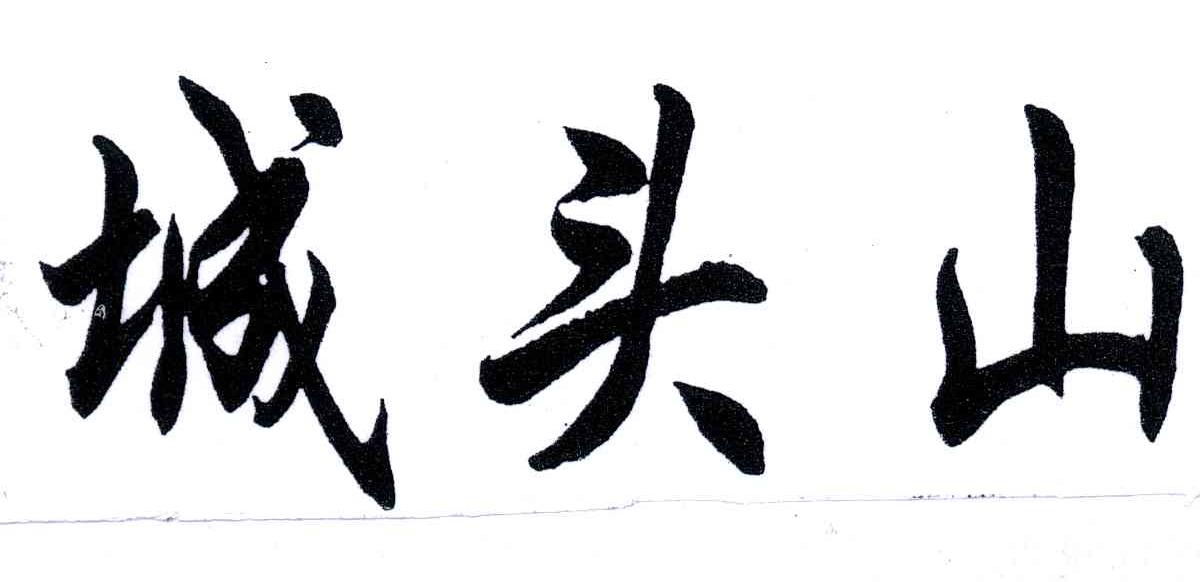 城头山